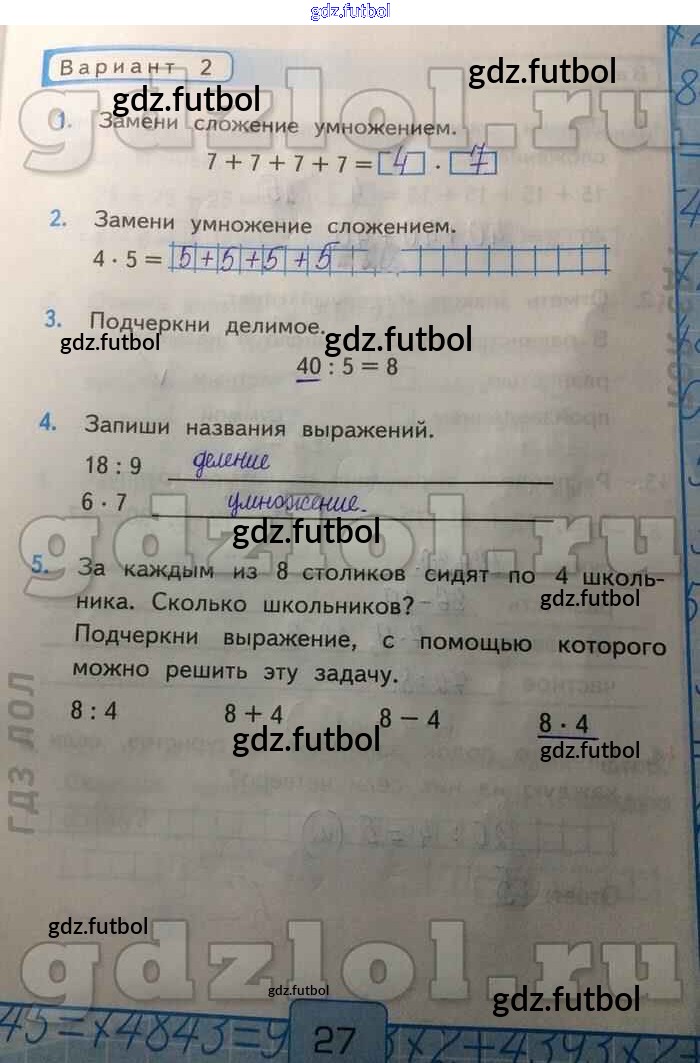 gdz.futbol
Вариант 2
gdz.futbol
gdz.futbol
gdzlol.ru
1. Замени сложение умножением.
7 + 7 + 7 + 7 = 4 · 7
2. Замени умножение сложением.
4 · 5 = 5 + 5 + 5 + 5
3. Подчеркни делимое.
gdz.futbol
gdz.futbol
40 : 5 = 8
4. Запиши названия выражений.
18 : 9 деление
6 · 7 умножение.
gdz.futbol
gdzlol.ru
5. За каждым из 8 столиков сидят по 4 школь-
ника. Сколько школьников?
gdz.futbol
Подчеркни выражение, с помощью которого
можно решить эту задачу.
8 : 4 8 + 4 8 − 4 8 · 4
gdz.futbol
gdz.futbol
ГДЗ ЛОЛ
gdz.futbol
gdzlol.ru
gdz.futbol
gdz.futbol
27